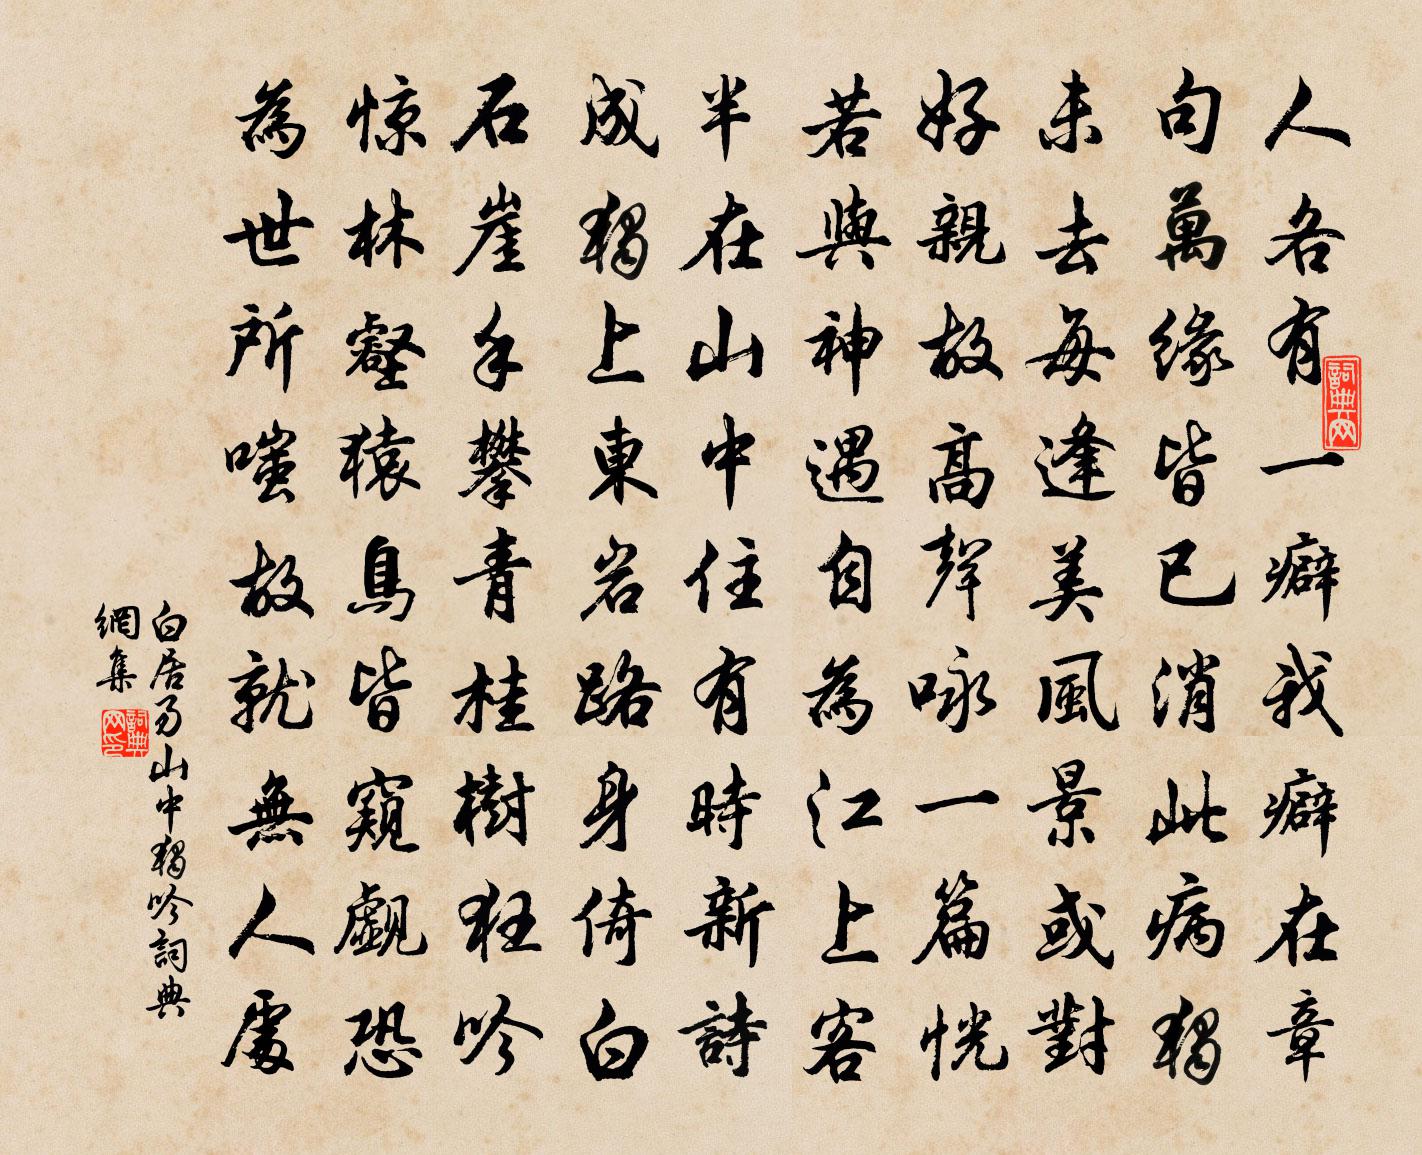 人各有一癖我癖在章
句萬緣皆已消此病獨
未去每逢美風景或對
好親故高聲咏一篇恍
若與神遇自為江上客
半在山中住有時新詩
成獨上東岩路身倚白
石崖手攀青桂樹狂吟
惊林壑猿鳥皆窺覷恐
為世所嗤故就無人處
白居易山中獨吟詞典
網集
詞典网
詞典网印